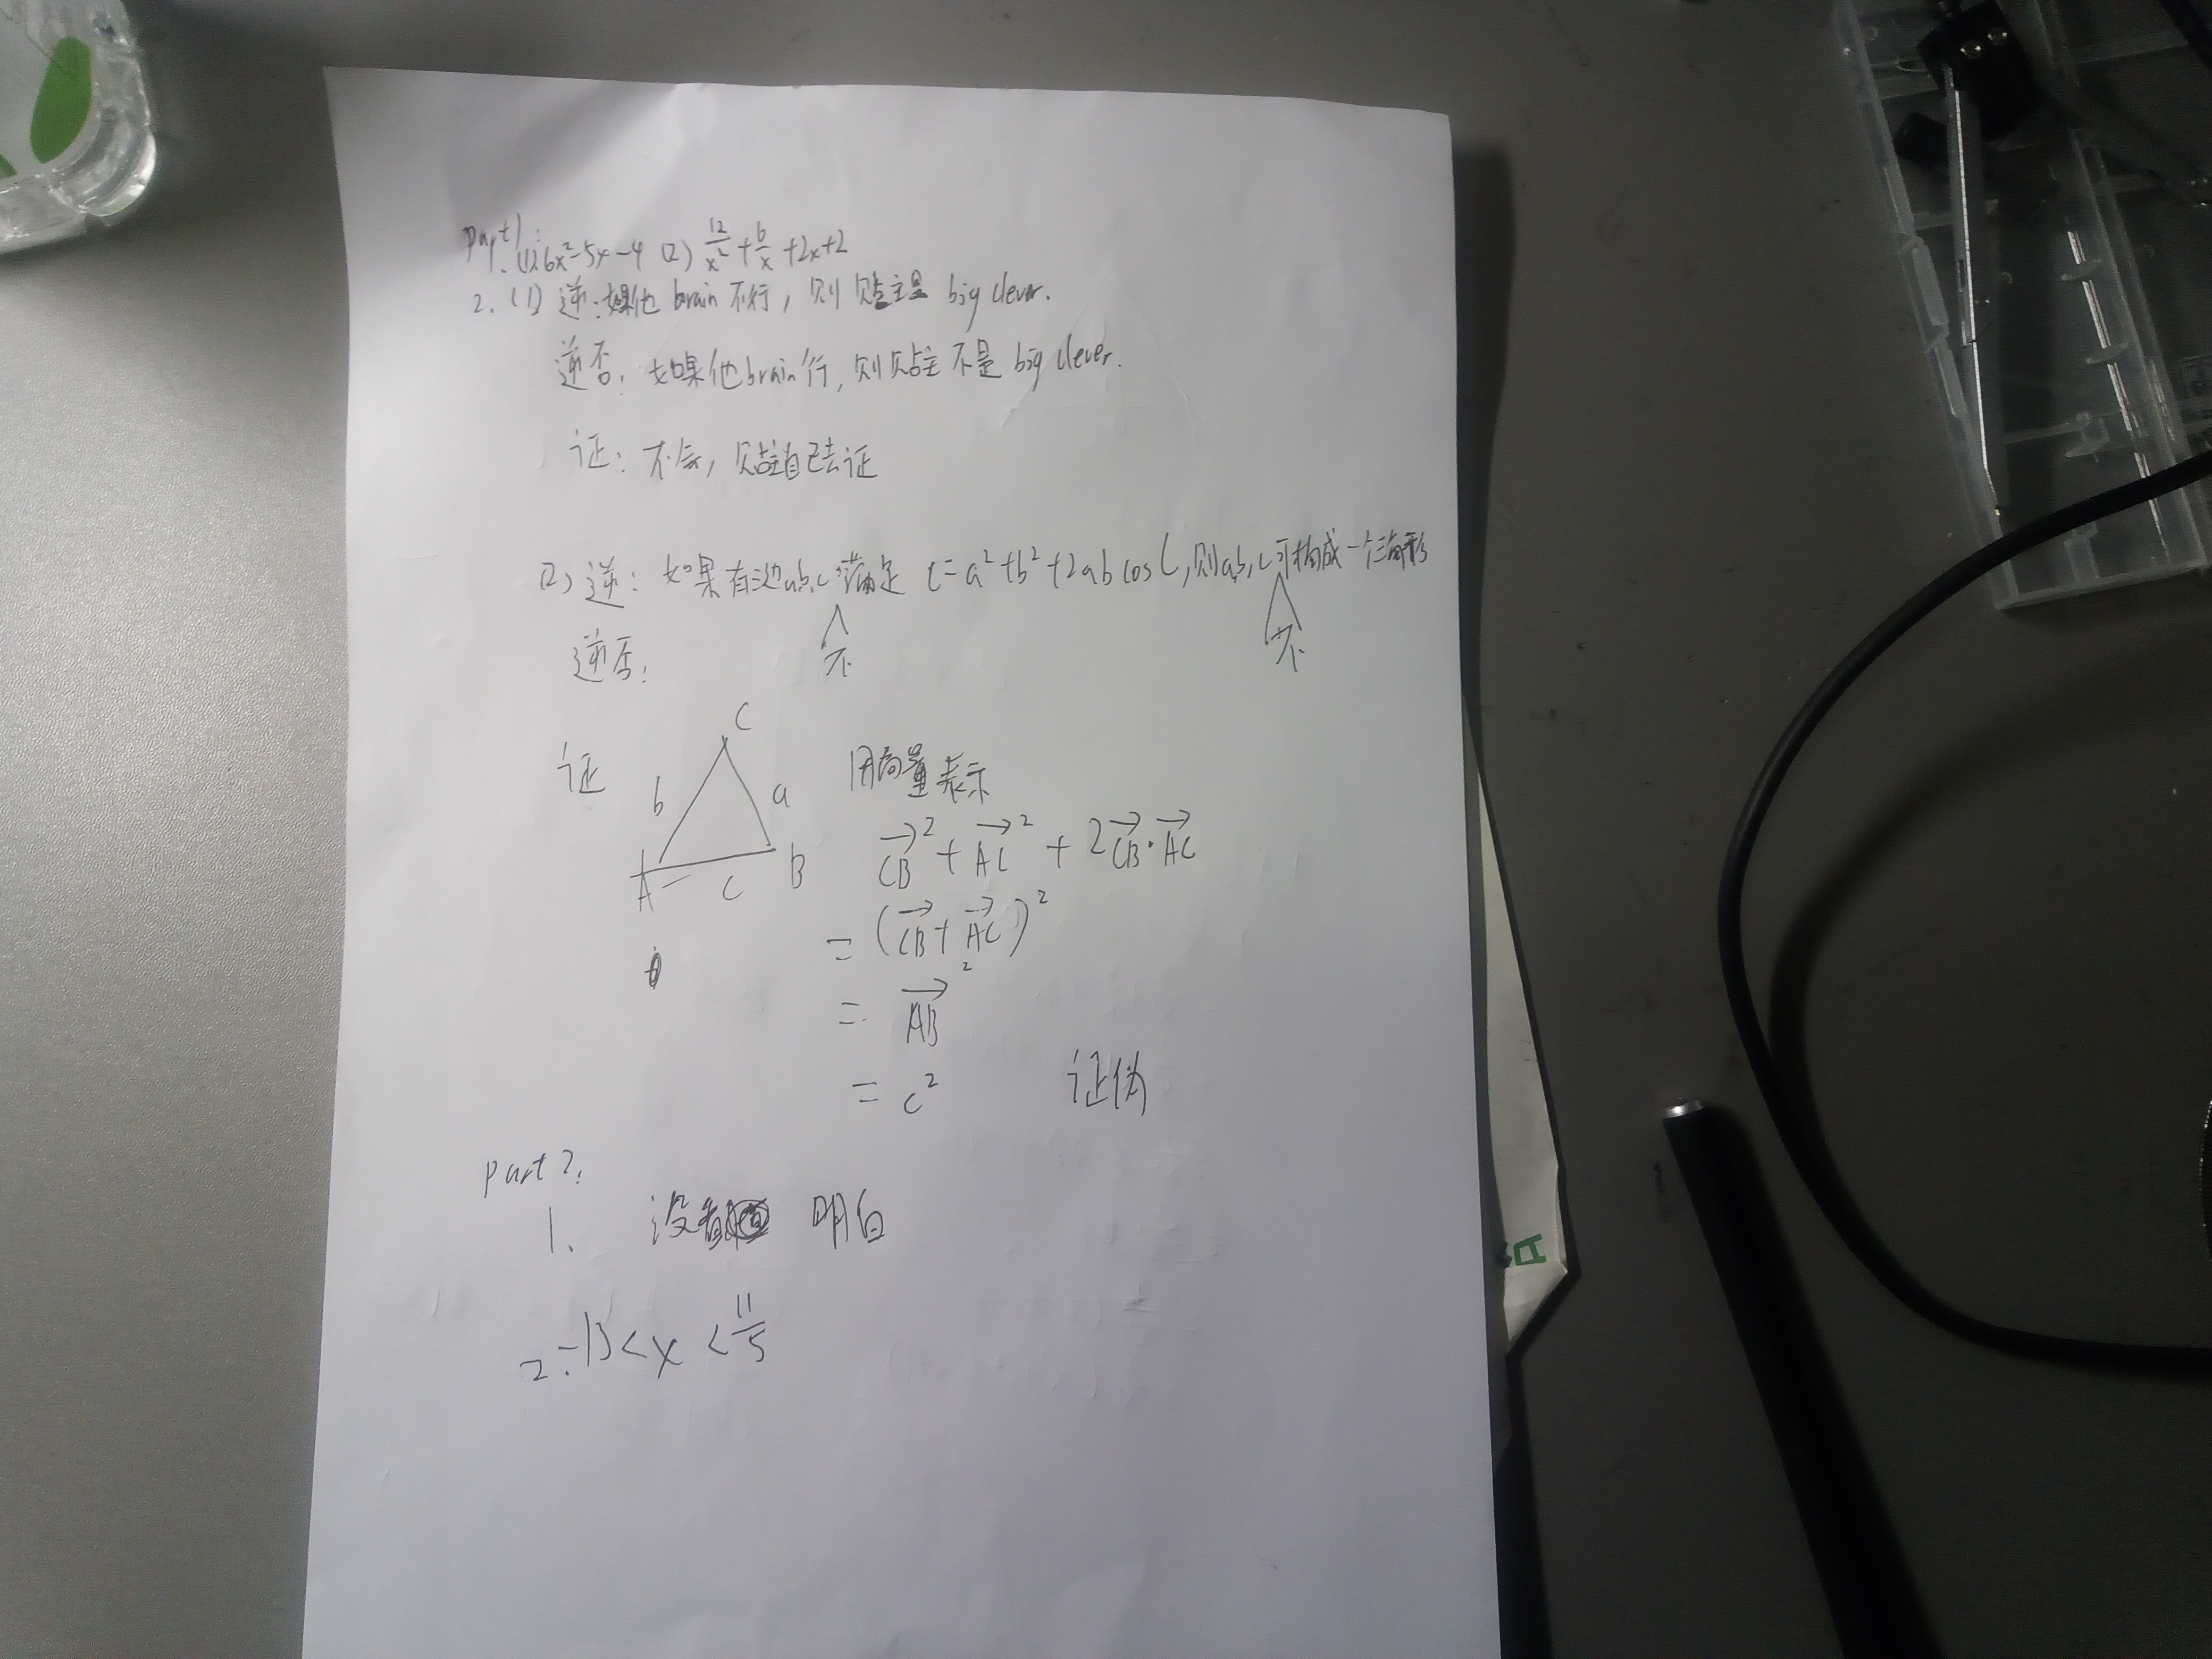 Part1:
1. (1) 6x²-5x-4 (2) 12/x² + 6/x + 2x+2
2. (1) 逆:如果他 brain 不行, 则贴主是 big clever.
逆否: 如果他 brain 行, 则贴主不是 big clever.
证: 不会, 贴主自己去证
(2) 逆: 如果有三边a,b,c满足 c=a²+b²+2ab cos C, 则a,b,c可构成一个三角形
逆否: 不 不
C
证 b a 用向量表示
A c B
CB² + AC² + 2CB·AC
= (CB+AC)²
= AB²
= c² 证伪
Part2:
1. 没看 明白
2. -13<x<11/5